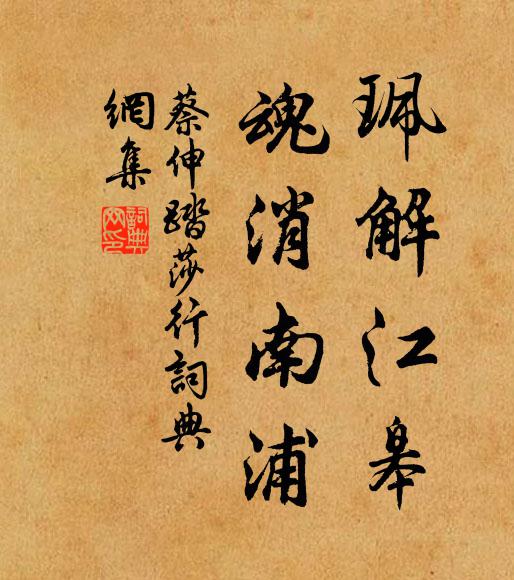 珮解江皋
魂消南浦
蔡伸踏莎行詞典
網集
詞典網印